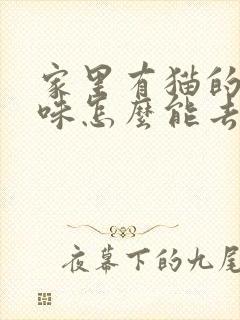 家里有猫的
咪怎麽能去
夜幕下的九尾